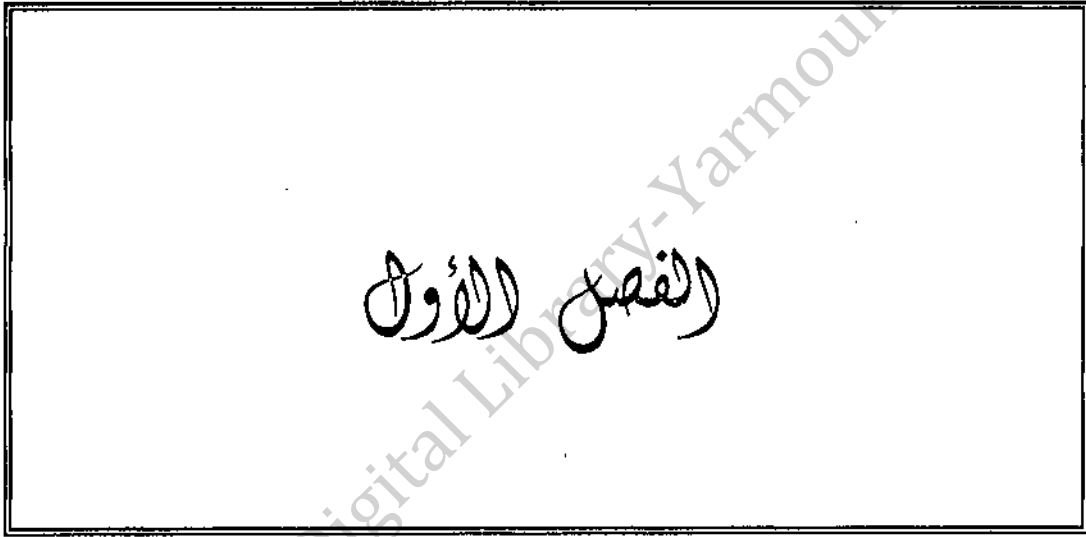 الفصل الأول
Digital Library-Yarmouk